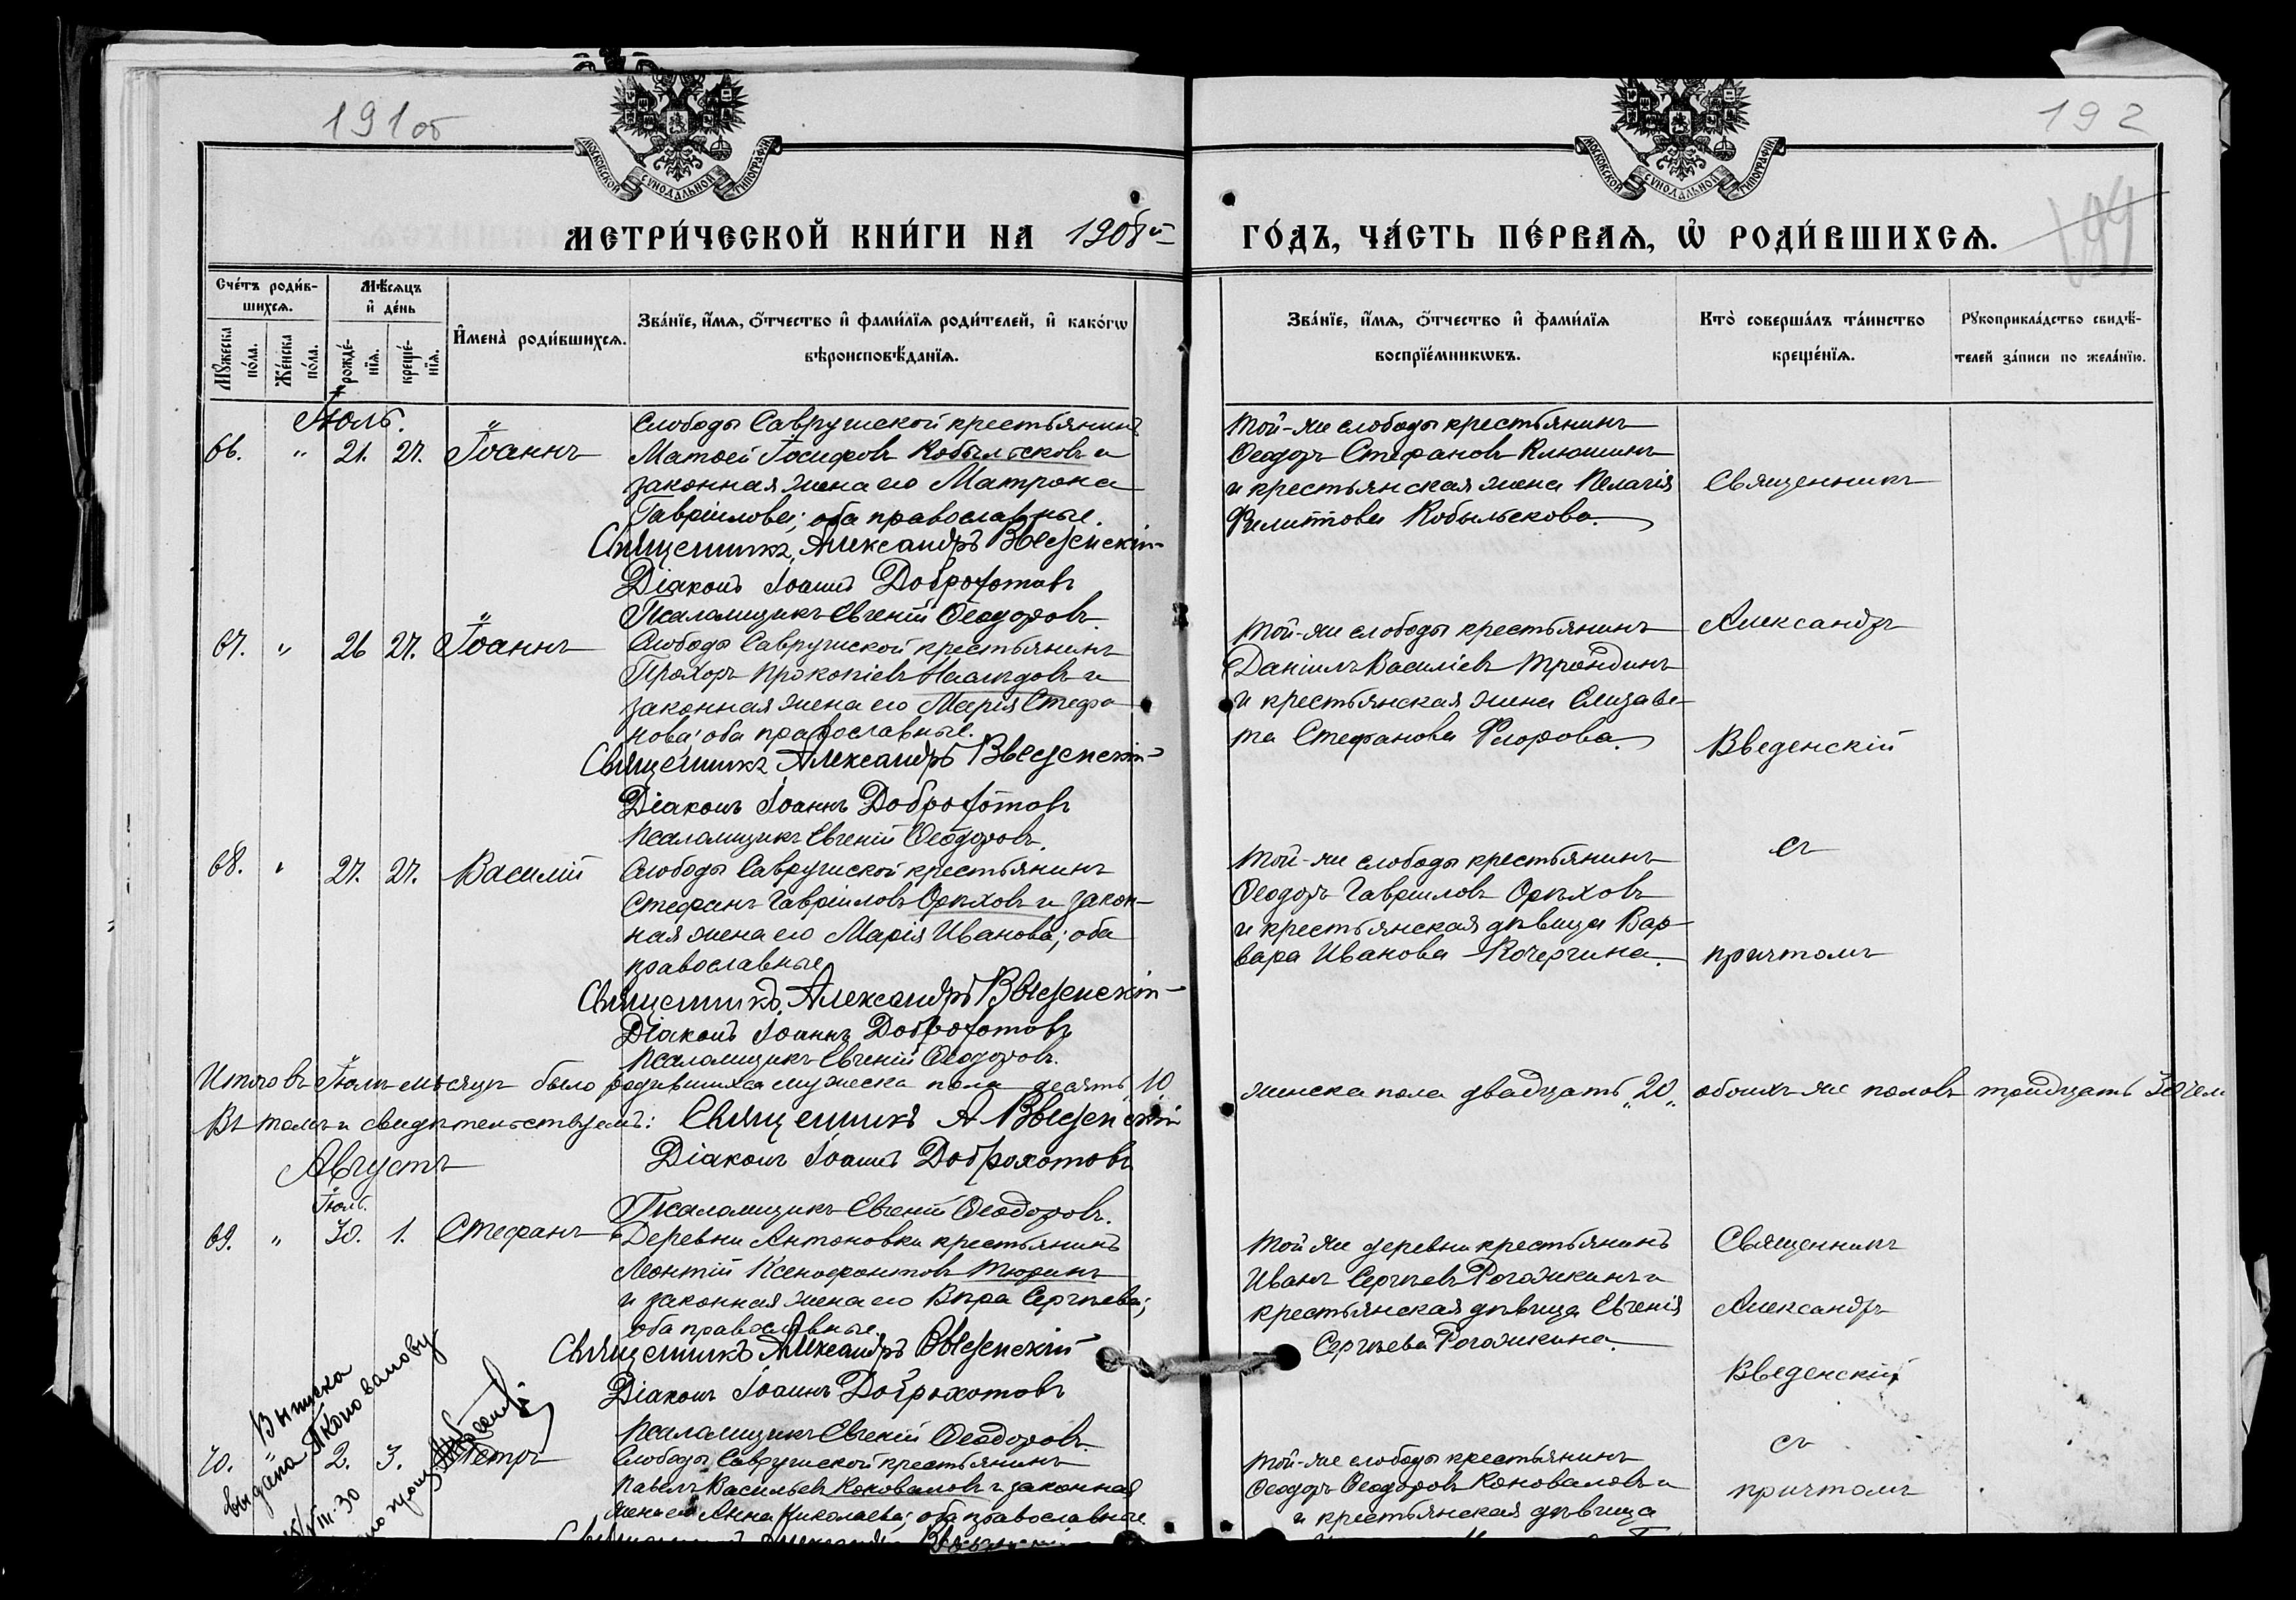 191 об
192
194
МОСКОВСКОЙ СѴНОДАЛЬНОЙ ТИПОГРАФІИ
МОСКОВСКОЙ СѴНОДАЛЬНОЙ ТИПОГРАФІИ
МЕТРИ́ЧЕСКОЙ КНИ́ГИ НА 1908й
ГО́ДЪ, ЧА́СТЬ ПЕ́РВАѦ, Ѡ҆ РОДИ́ВШИХСѦ.
Сче́тъ роди́в-
шихсѧ.
Мꙋ́жеска по́ла.
Же́нска по́ла.
Мѣ́сѧцъ и҆ де́нь
рожде́-нїѧ.
креще́-нїѧ.
И҆мена̀ роди́вшихсѧ.
Зва́нїе, и҆́мѧ, ѻ҆́тчество и҆ фамѝлїѧ роди́телей, и҆ како́гѡ
вѣроисповѣ́данїѧ.
Зва́нїе, и҆́мѧ, ѻ҆́тчество и҆ фамѝлїѧ
воспрїе́мникѡвъ.
Кто̀ соверша́лъ та́инство
креще́нїѧ.
Рꙋкоприкла́дство свидѣ́-
телей за́писи по жела́нїю.
Іюль.
66. " 21. 27. Іоаннъ
Слободы Саврушской крестьянинъ
Матѳей Іосифовъ Кобыльсковъ и
законная жена его Матрона
Гавріилова; оба православные.
Священникъ Александръ Введенскій
Діаконъ Іоаннъ Доброхотовъ
Псаломщикъ Евгеній Ѳеодоровъ.
Той-же слободы крестьянинъ
Ѳеодоръ Стефановъ Клюшинъ
и крестьянская жена Пелагія
Филиппова Кобыльскова.
Священникъ
67. " 26 27. Іоаннъ
Слободы Саврушской крестьянинъ
Прохоръ Прокопіевъ и
законная жена его Марія Стефа
нова; оба православные.
Священникъ Александръ Введенскій
Діаконъ Іоаннъ Доброхотовъ
Псаломщикъ Евгеній Ѳеодоровъ.
Той-же слободы крестьянинъ
Даніилъ Василіевъ Трондинъ
и крестьянская жена Елизаве-
та Стефанова Флорова.
Александръ
Введенскій
68. " 27. 27. Василій
Слободы Саврушской крестьянинъ
Стефанъ Гавріиловъ Орѣховъ и закон-
ная жена его Марія Иванова; оба
православные
Священникъ Александръ Введенскій
Діаконъ Іоаннъ Доброхотовъ
Псаломщикъ Евгеній Ѳеодоровъ.
Той-же слободы крестьянинъ
Ѳеодоръ Гавріиловъ Орѣховъ
и крестьянская дѣвица Вар-
вара Иванова Кочергина.
съ
причтомъ
Итого въ Іюлѣ мѣсяцѣ было родившихся мужеска пола десять 10
женска пола двадцать "20" обоихъ же половъ тридцать 30 чел
Въ томъ и свидѣтельствуемъ: Священникъ А Введенскій
Августъ
Діаконъ Іоаннъ Доброхотовъ
Псаломщикъ Евгеній Ѳеодоровъ.
Іюль.
69. " 30. 1. Стефанъ
Деревни Антоновки крестьянинъ
Леонтій Ксенофонтовъ Тюринъ
и законная жена его Вѣра Сергѣева;
оба православные.
Священникъ Александръ Введенскій
Діаконъ Іоаннъ Доброхотовъ
Псаломщикъ Евгеній Ѳеодоровъ.
Той же деревни крестьянинъ
Иванъ Сергѣевъ Рогожкинъ и
крестьянская дѣвица Евгенія
Сергѣева Рогожкина.
Священникъ
Александръ
Введенскій
Выписка
выдана Коновалову
III-30
70. " 2. 3. Петръ
Слободы Саврушской крестьянинъ
Павелъ Васильевъ Коноваловъ и законная
жена его Анна Николаева; оба православные
Священникъ Александръ Введенскій
Той-же слободы крестьянинъ
Ѳеодоръ Ѳеодоровъ Коноваловъ и
и крестьянская дѣвица
съ
причтомъ